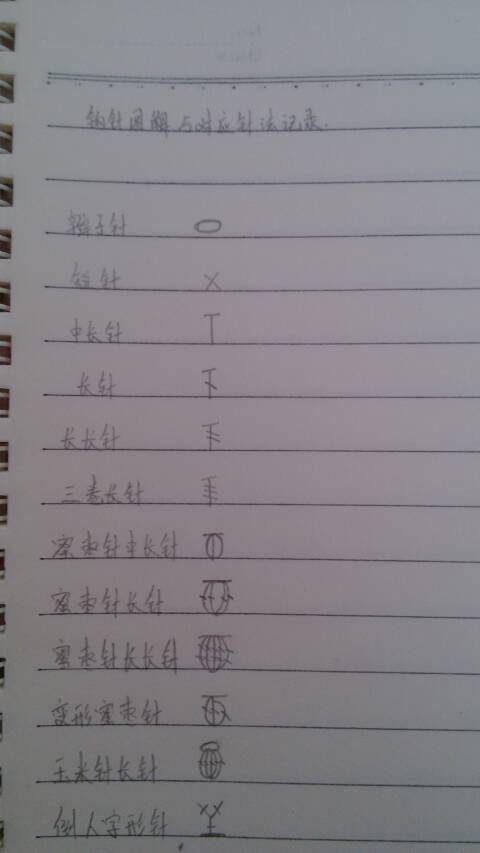 钩针图解与对应针法记录.
辫子针
短针
中长针
长针
长长针
三卷长针
蜜枣针中长针
蜜枣针长针
蜜枣针长长针
变形蜜枣针
玉米针长针
倒人字形针